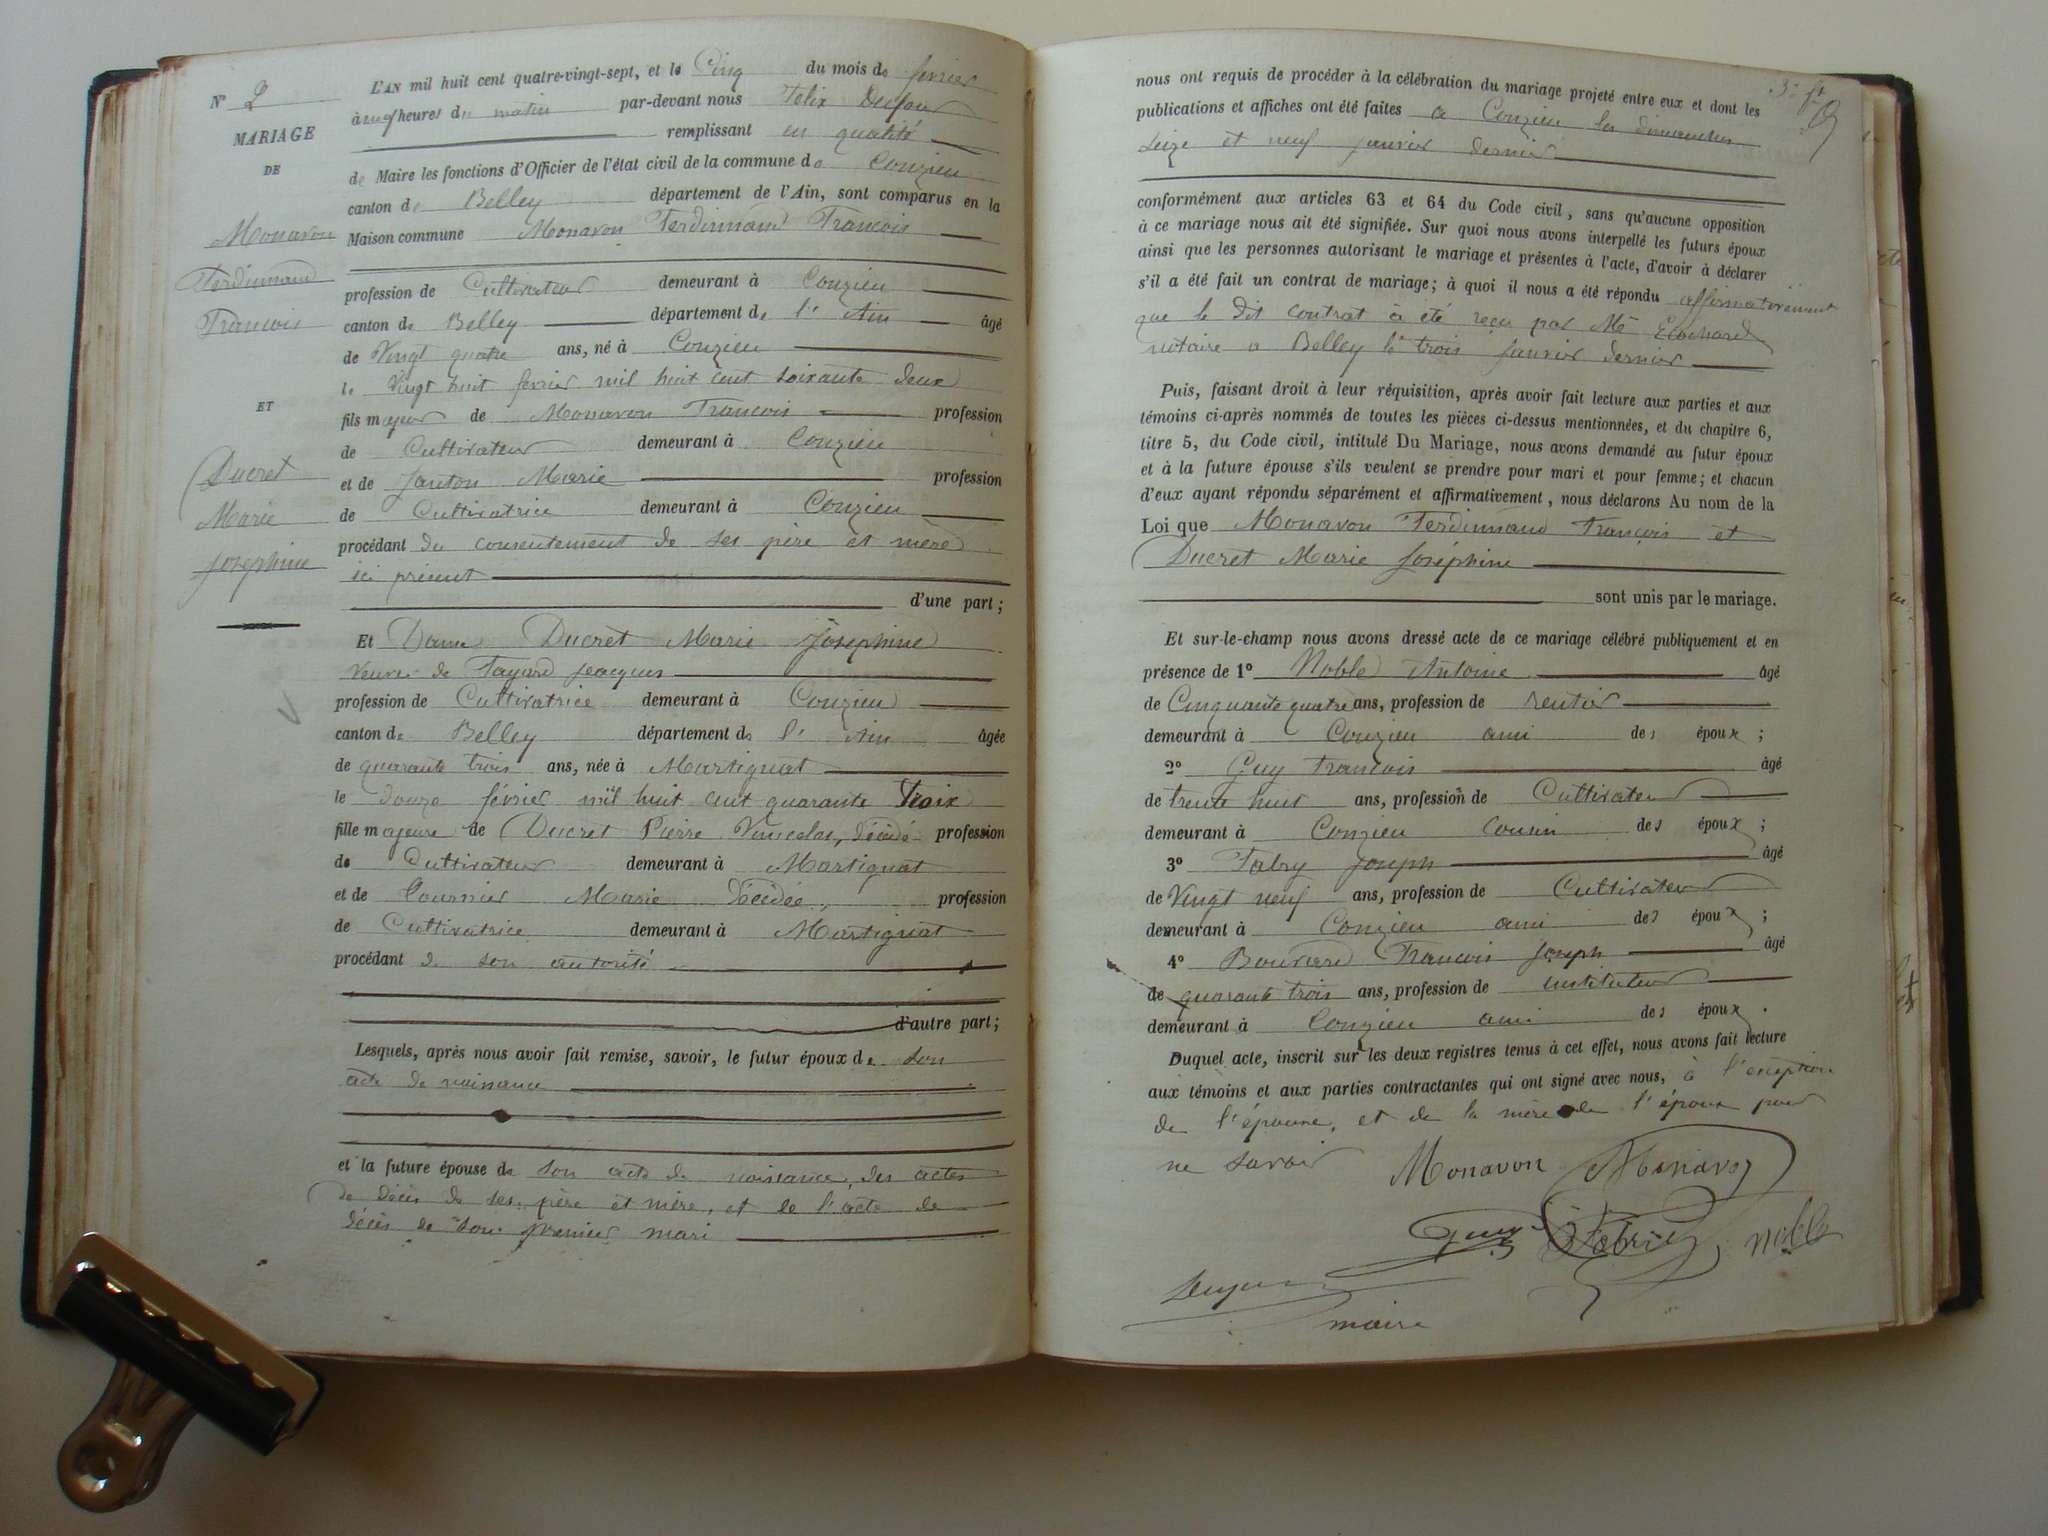 N° 2
MARIAGE
DE
Monavon
Ferdinnand
Francois
ET
Ducret
Marie
Joséphine
L'AN mil huit cent quatre-vingt-sept, et le Cinq du mois de fevrier
à neuf heures du matin par-devant nous Felix Dufour
remplissant en qualité
de Maire les fonctions d'Officier de l'état civil de la commune de Conzieu
canton de Belley département de l'Ain, sont comparus en la
Maison commune Monavon Ferdinnand Francois
profession de Cultivateur demeurant à Conzieu
canton de Belley département de l'Ain âgé
de Vingt quatre ans, né à Conzieu
le Vingt huit fevrier mil huit cent soixante deux
fils majeur de Monavon Francois profession
de Cultivateur demeurant à Conzieu
et de Janton Marie profession
de Cultivatrice demeurant à Conzieu
procédant du consentement de ses père et mère
ici présent
d'une part ;
Et Dame Ducret Marie Joséphine
veuve de Fayard Jeacques
profession de Cultivatrice demeurant à Conzieu
canton de Belley département de l'Ain âgée
de quarante trois ans, née à Martignat
le douze février mil huit cent quarante Troix
fille majeure de Ducret Pierre Vincelas, décédé profession
de Cultivateur demeurant à Martignat
et de Tournier Marie décédée, profession
de Cultivatrice demeurant à Martignat
procédant de son autorité
d'autre part ;
Lesquels, après nous avoir fait remise, savoir, le futur époux de son
acte de naissance
et la future épouse de son acte de naissance, des actes
de décès de ses père et mère, et de l'acte de
décès de son premier mari
nous ont requis de procéder à la célébration du mariage projeté entre eux et dont les
publications et affiches ont été faites a Conzieu les dimanches
seize et neuf janvier dernier
conformément aux articles 63 et 64 du Code civil, sans qu'aucune opposition
à ce mariage nous ait été signifiée. Sur quoi nous avons interpellé les futurs époux
ainsi que les personnes autorisant le mariage et présentes à l'acte, d'avoir à déclarer
s'il a été fait un contrat de mariage ; à quoi il nous a été répondu affirmativement
que le dit contrat à été reçu par Me
notaire a Belley le trois janvier dernier
Puis, faisant droit à leur réquisition, après avoir fait lecture aux parties et aux
témoins ci-après nommés de toutes les pièces ci-dessus mentionnées, et du chapitre 6,
titre 5, du Code civil, intitulé Du Mariage, nous avons demandé au futur époux
et à la future épouse s'ils veulent se prendre pour mari et pour femme ; et chacun
d'eux ayant répondu séparément et affirmativement, nous déclarons Au nom de la
Loi que Monavon Ferdinnand François et
Ducret Marie Joséphine
sont unis par le mariage.
Et sur-le-champ nous avons dressé acte de ce mariage célébré publiquement et en
présence de 1° Noble Antoine âgé
de Cinquante quatre ans, profession de rentier
demeurant à Conzieu ami des époux ;
2° Guy Francois âgé
de trente huit ans, profession de Cultivateur
demeurant à Conzieu cousin des époux ;
3° Fabry Joseph âgé
de Vingt neuf ans, profession de Cultivateur
demeurant à Conzieu ami des époux ;
4° Bouvard Francois Joseph âgé
de quarante trois ans, profession de instituteur
demeurant à Conzieu ami des époux .
Duquel acte, inscrit sur les deux registres tenus à cet effet, nous avons fait lecture
aux témoins et aux parties contractantes qui ont signé avec nous, à l'exception
de l'épouse, et de la mère de l'époux pour
ne savoir Monavon Monavon
Guy Fabri noble
maire